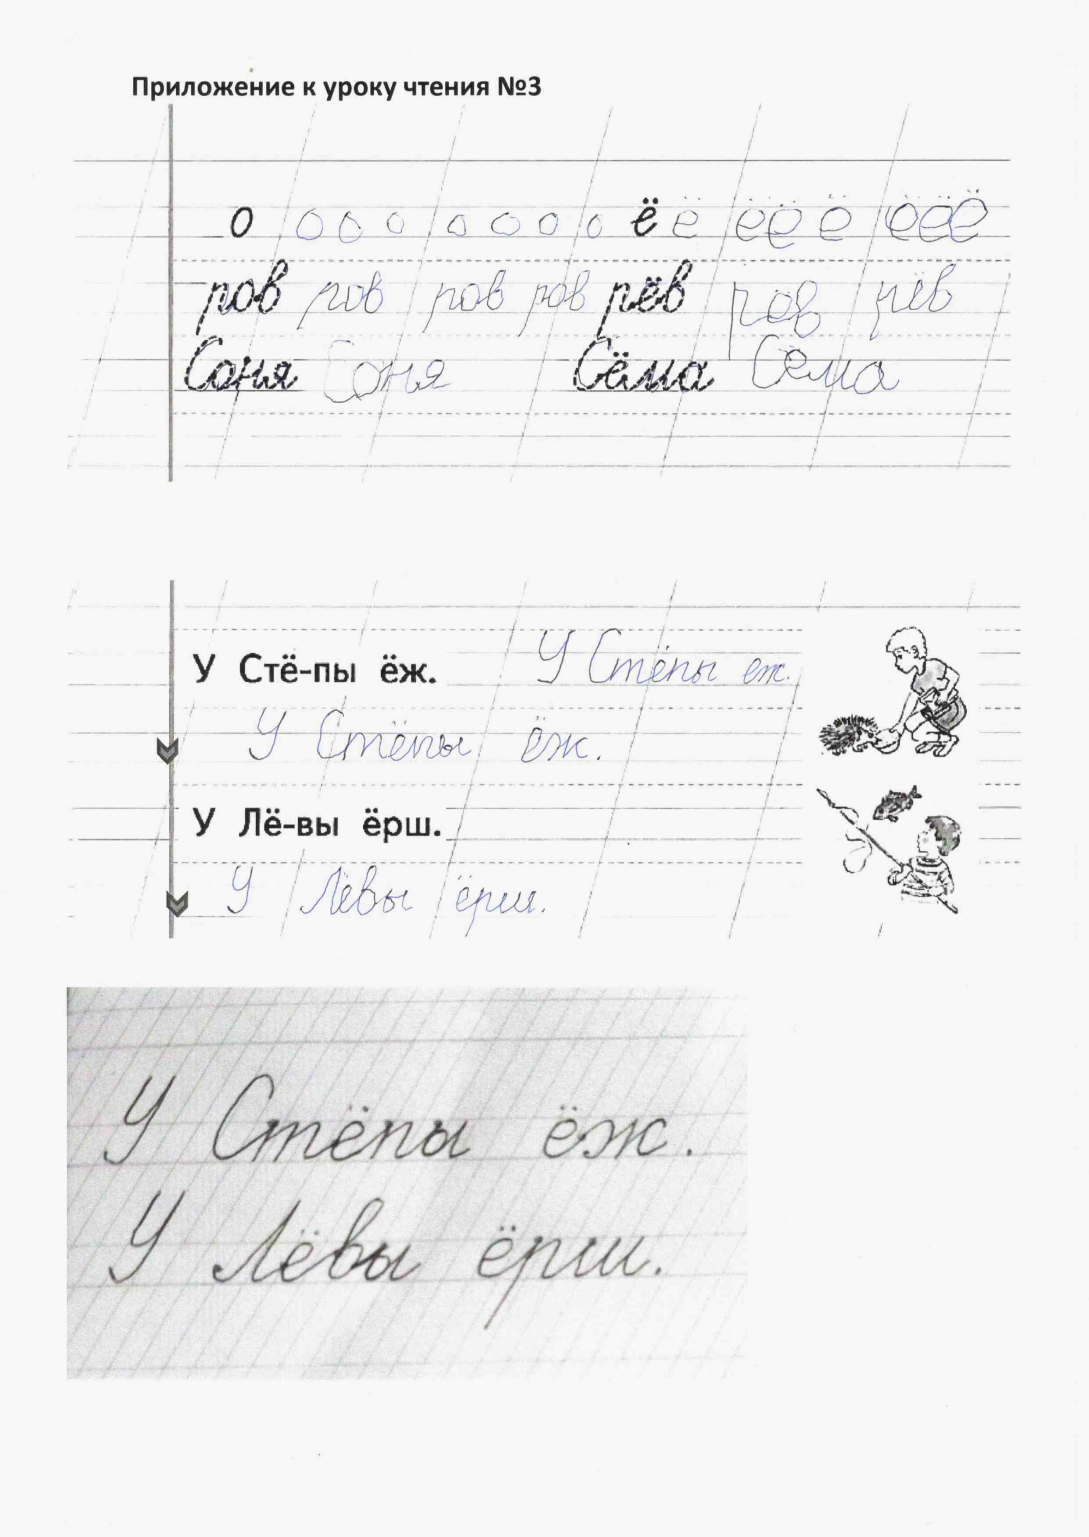 Приложение к уроку чтения №3
о о о о о о о о ё ё ё ё ё ё ё ё
ров ров ров ров рёв рёв рёв
Соня Соня Сёма Сёма
У Стё-пы ёж. У Стёпы еж.
У Стёпы ёж.
У Лё-вы ёрш.
У Лёвы ёрш.
У Стёпы ёж.
У Лёвы ёрш.